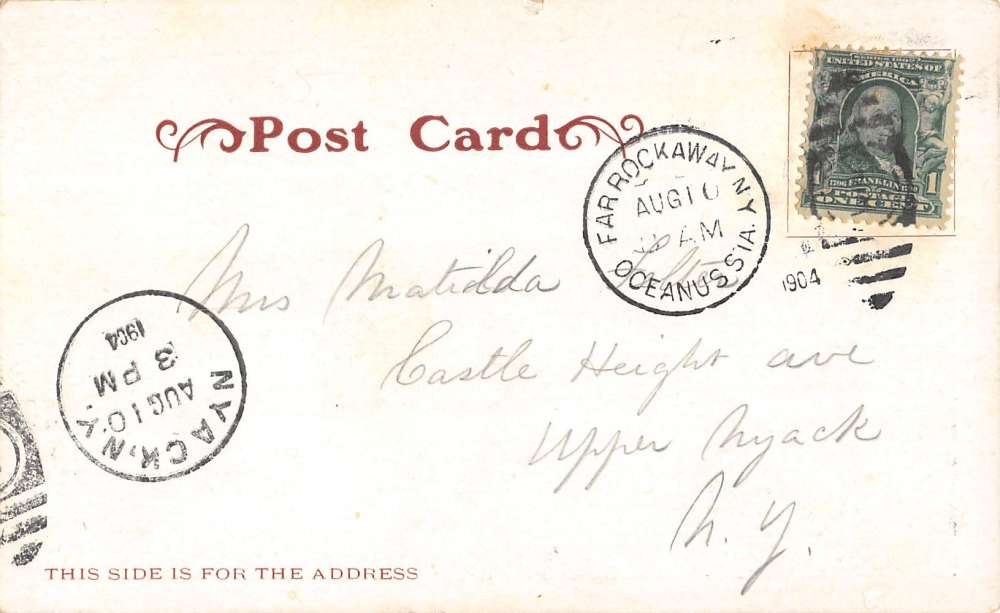 Post Card
SERIES 1902
UNITED STATES OF
AMERICA
1706 FRANKLIN
POSTAGE
1 1
ONE CENT
FAR ROCKAWAY N.Y.
AUG 10
AM
OCEANUS STA.
1904
Mrs Matilda
Castle Height ave
Upper Nyack
N. Y.
NYACK, N.Y.
AUG 10
3 PM
1904
THIS SIDE IS FOR THE ADDRESS